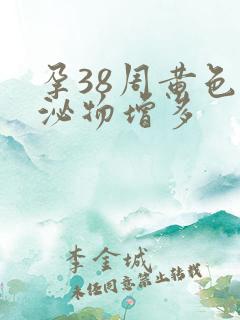 孕38周黄色
泌物增多
李金城
未经同意禁止转载